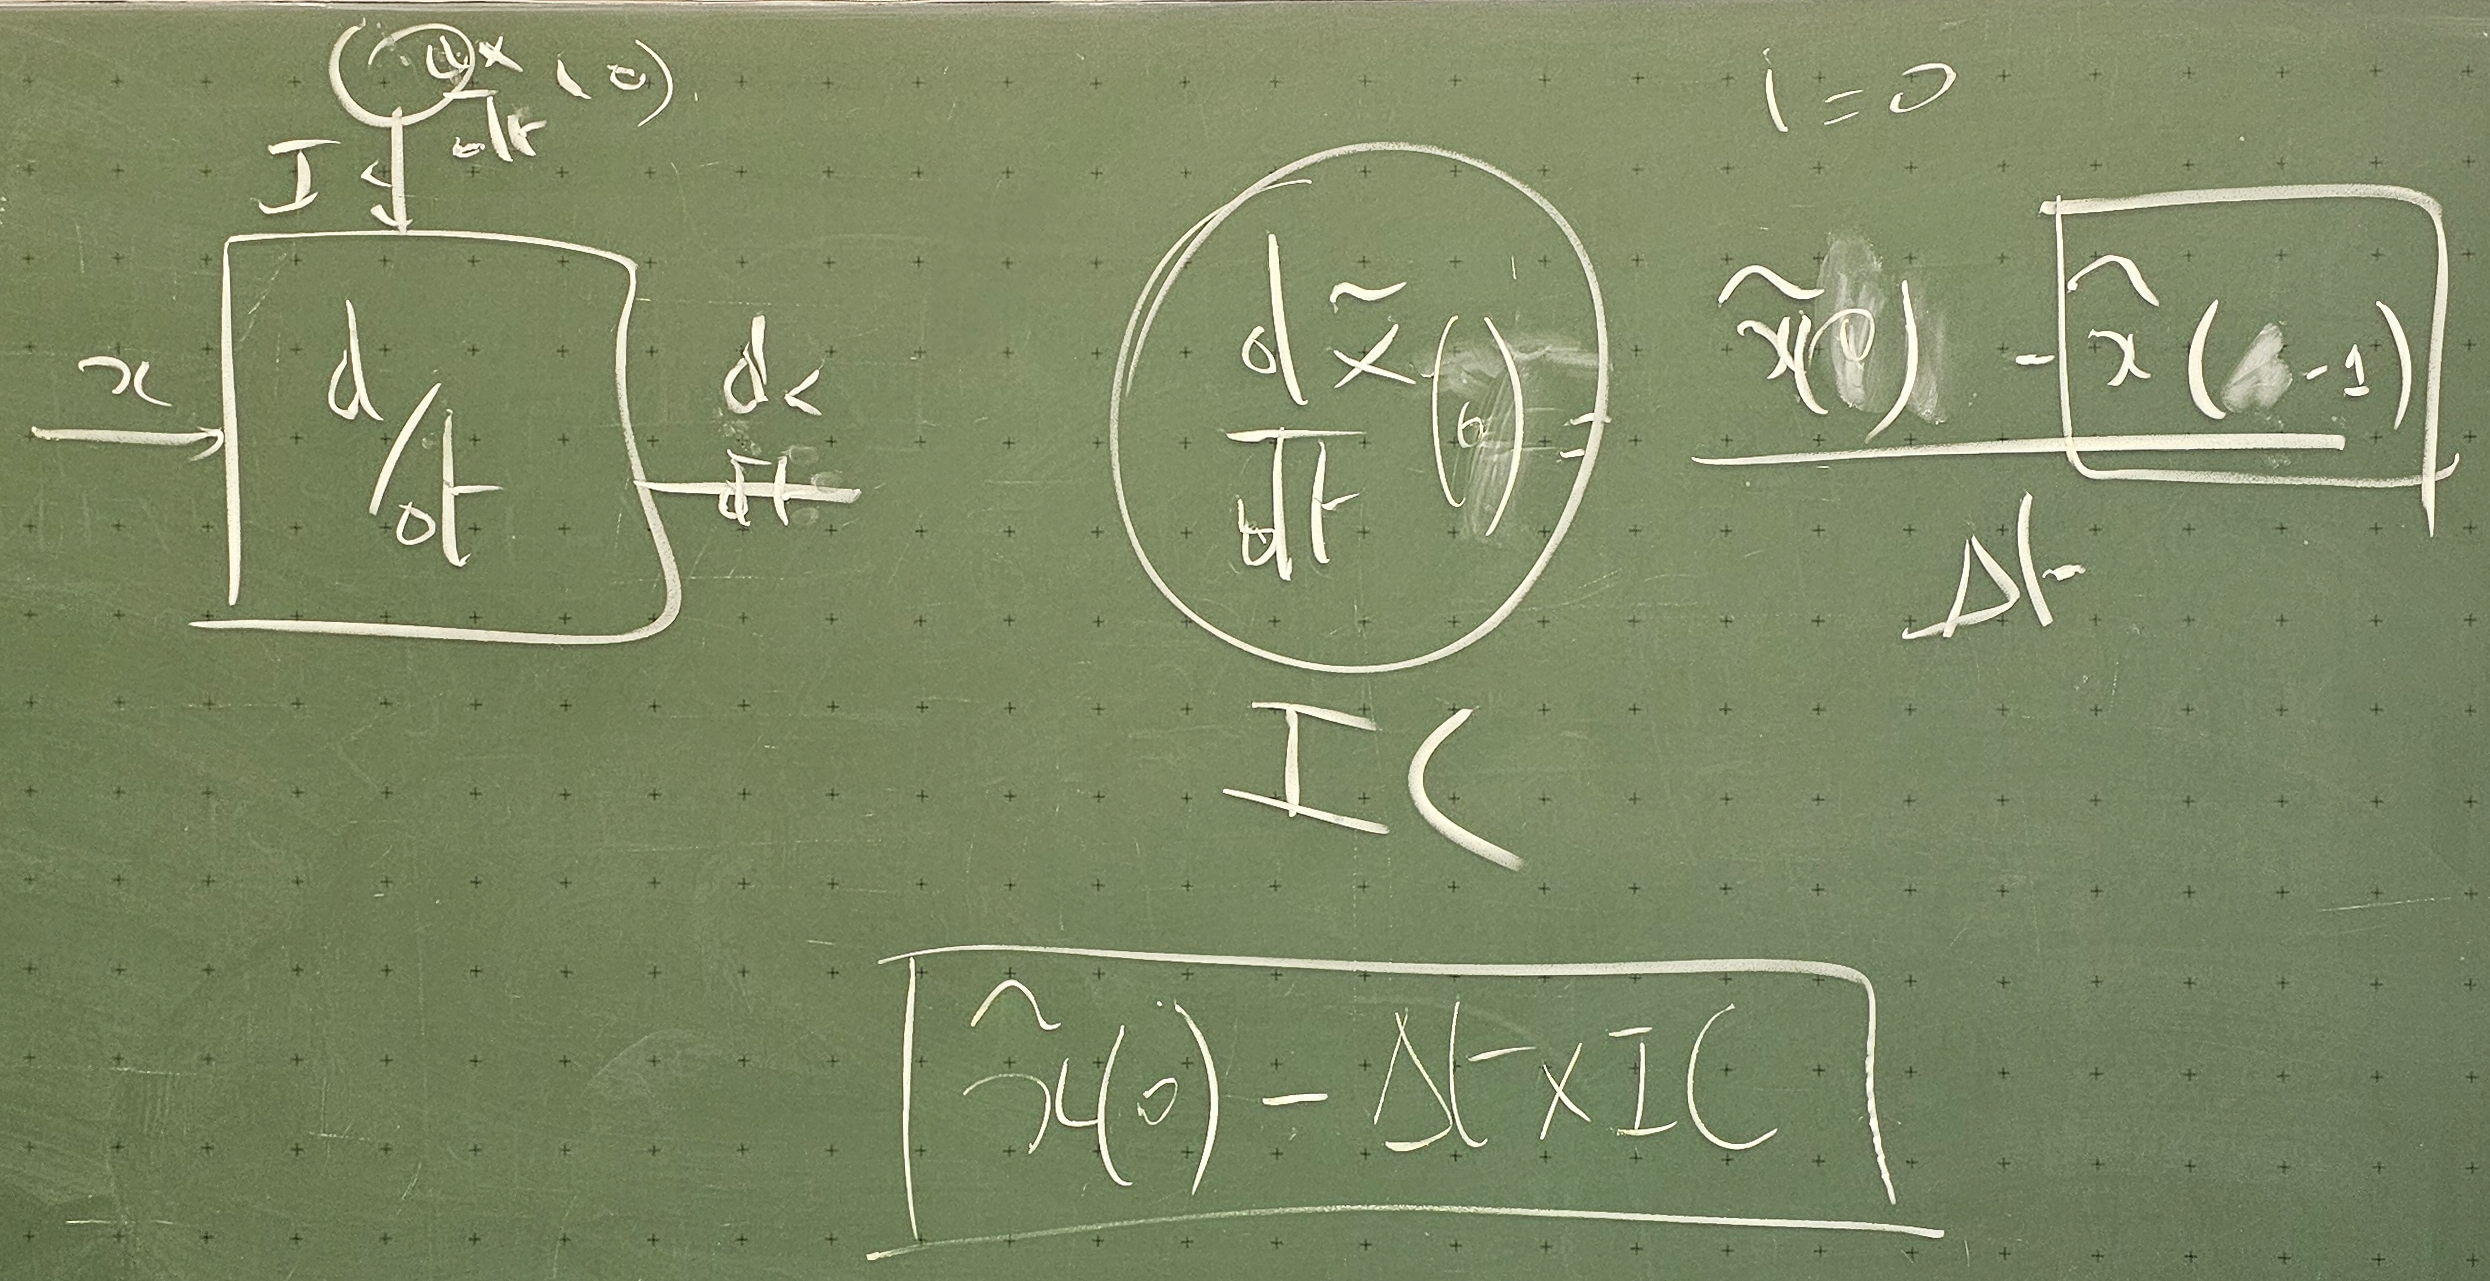 dx/dt (0)
i = 0
I
x
d/dt
dx/dt
dx̃/dt (0) = (x̃(0) - x̃(-1)) / Δt
IC
x̃(0) - Δt × IC